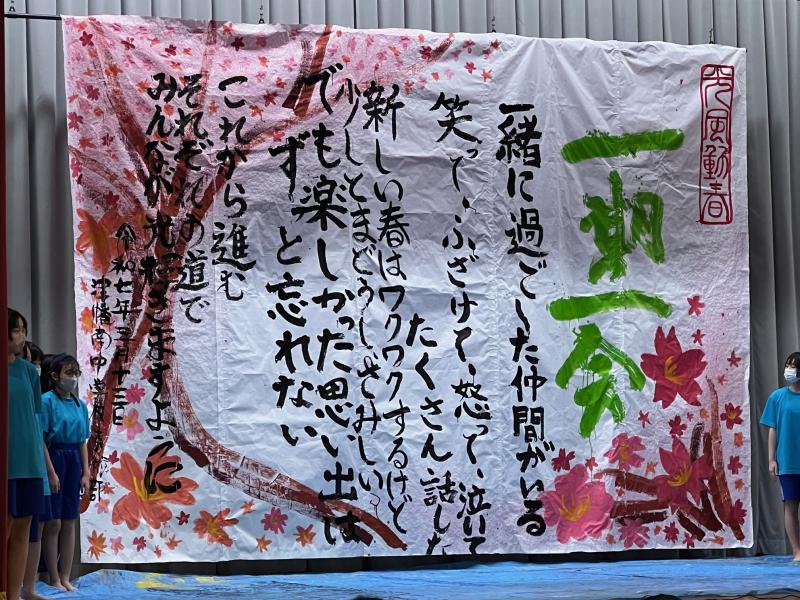 光風動春
一期一会
一緒に過ごした仲間がいる
笑って、ふざけて、怒って、泣いて
たくさん話した
新しい春はワクワクするけど
少しとまどうし、さみしい
でも楽しかった思い出は
ずっと忘れない
これから進む
それぞれの道で
みんなが光輝きますように
令和七年三月十三日
津幡南中